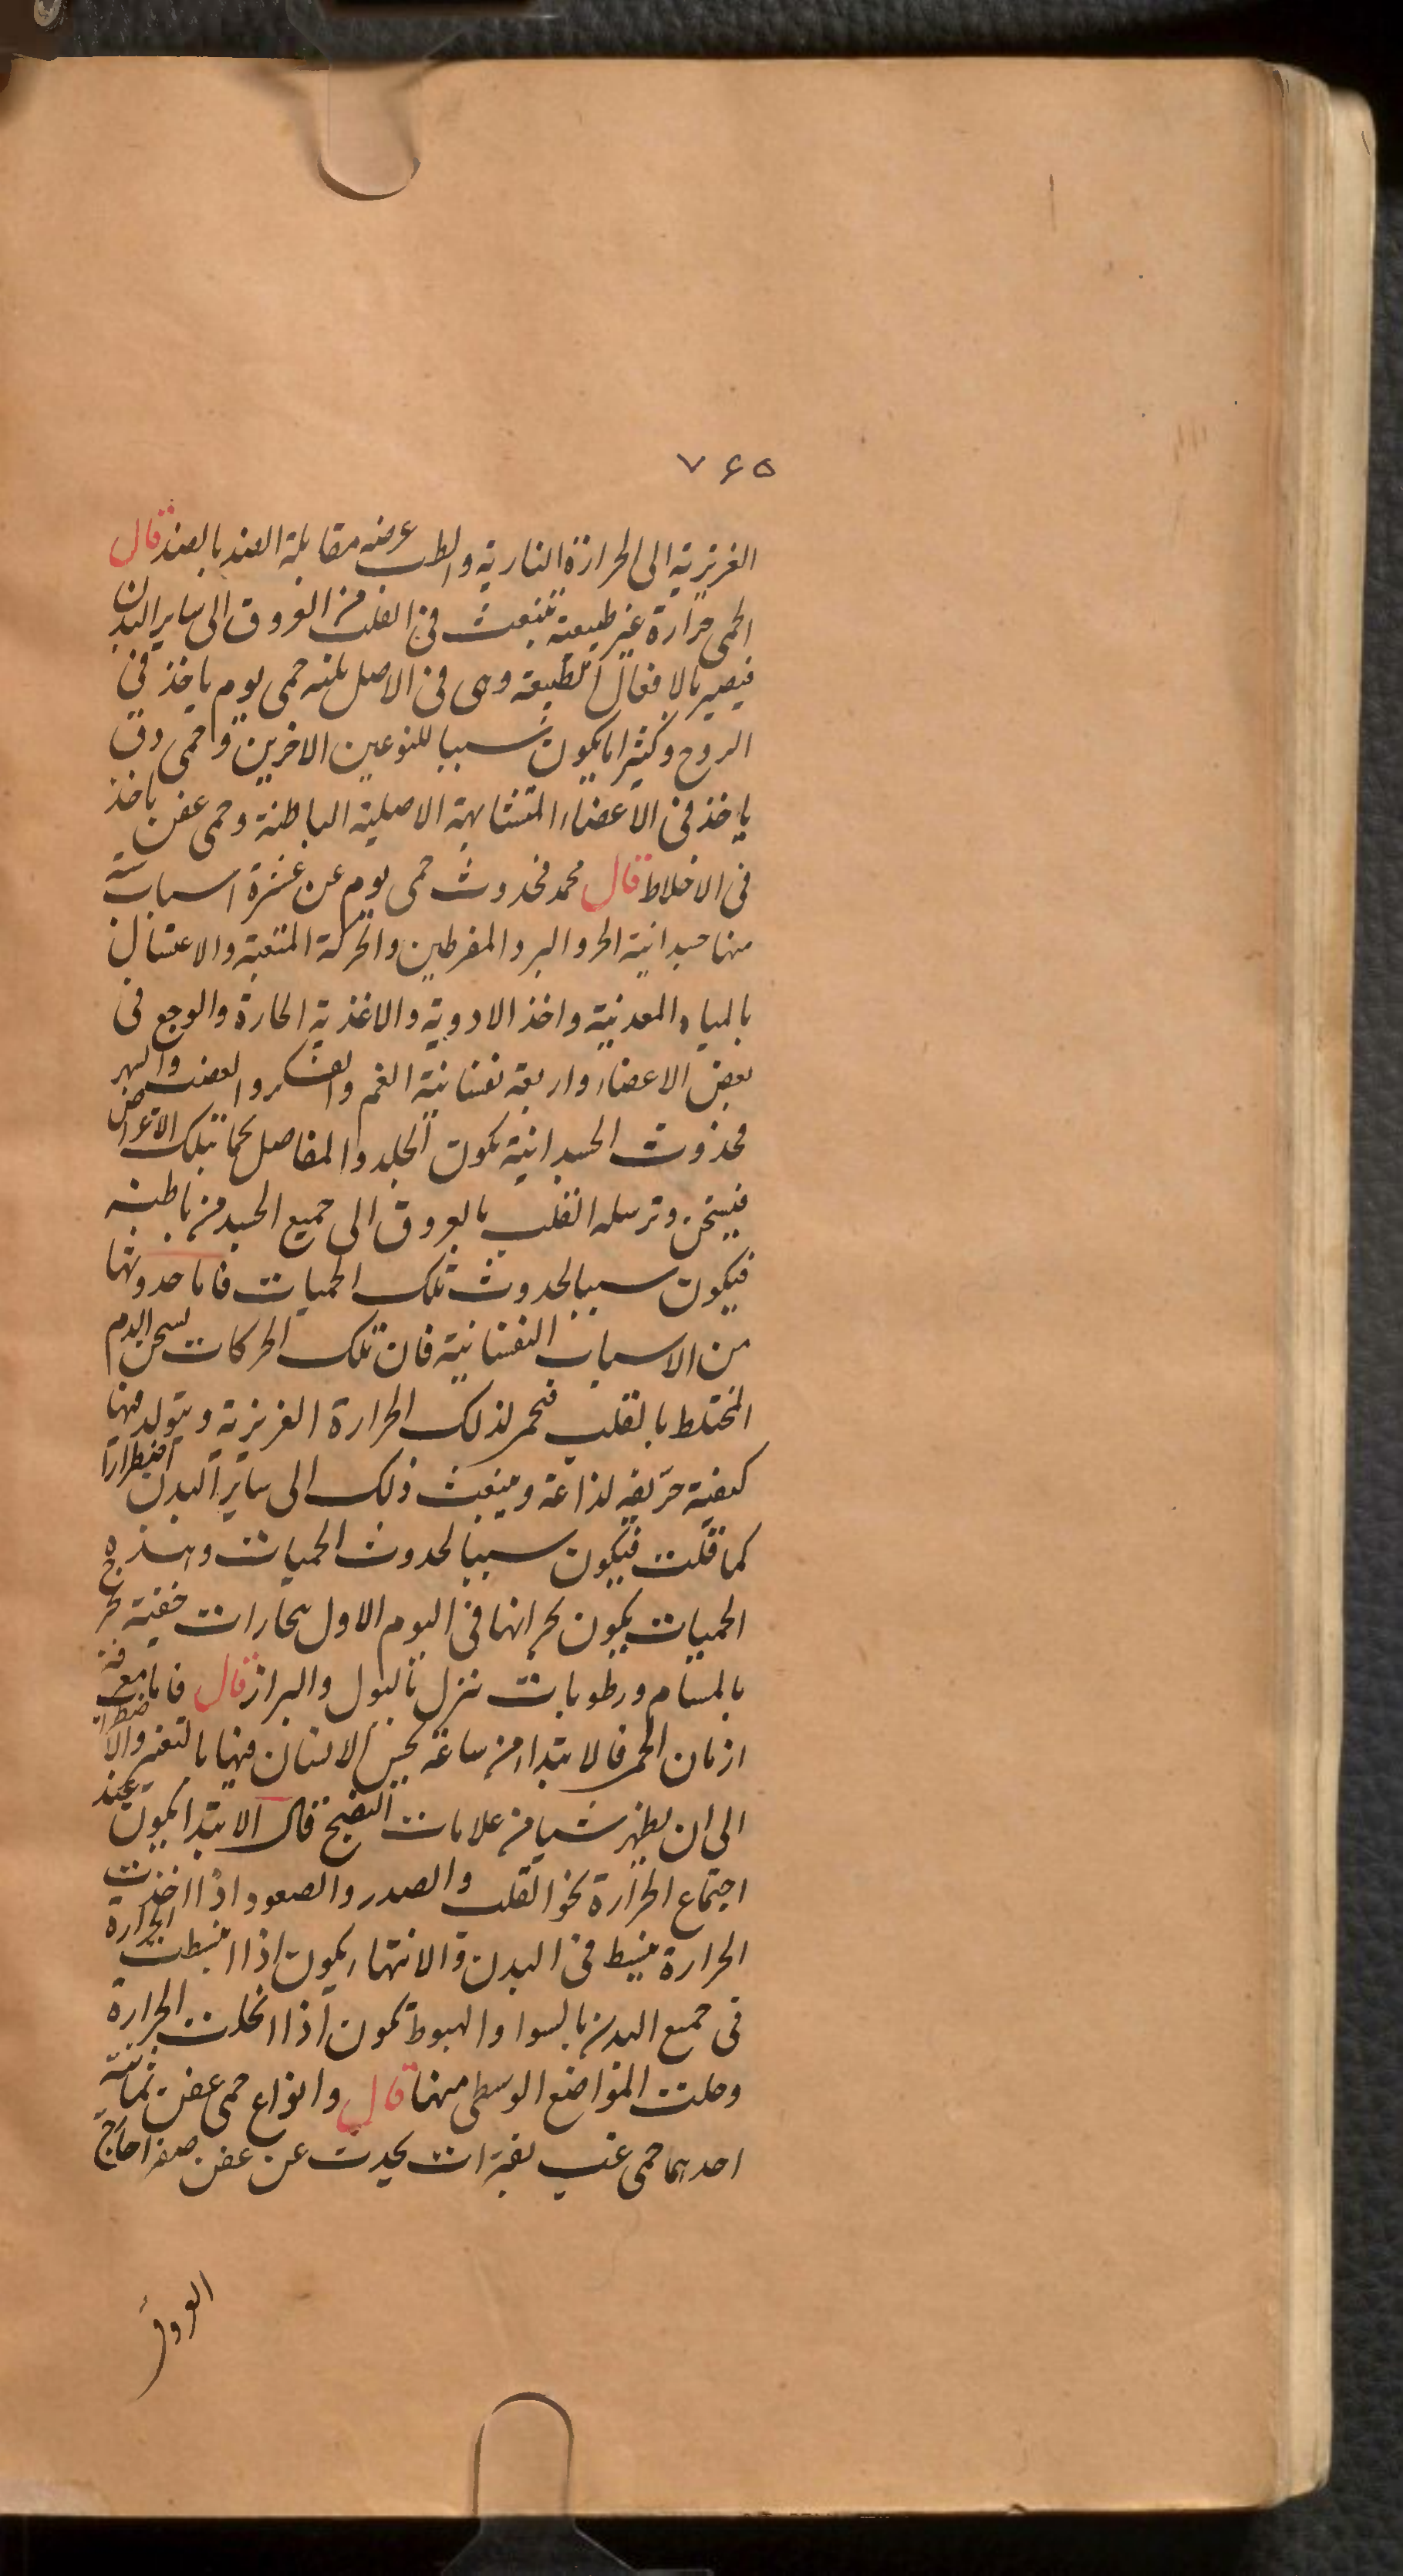 ٧۶۵
الغريزية الى الحرارة النارية والطب عرضه مقابلة الضد بالضد قال
الحمى حرارة غير طبيعية تنبعث فى القلب من العروق الى ساير البدن
فيضر بالافعال الطبيعة وهى فى الاصل ثلثه حمى يوم ياخذ فى
الروح وكثيرا ما يكون سببا للنوعين الاخرين وحمى دق
ياخذ فى الاعضاء المتشابهة الاصلية الباطنة وحمى عفن ياخذ
فى الاخلاط قال محمد فحدوث حمى يوم عن عشرة اسباب ستة
منها جسدانية الحر والبرد المفرطين والحركة المتعبة والاغتسال
بالمياه المعدنية واخذ الادوية والاغذية الحارة والوجع فى
بعض الاعضاء واربعة نفسانية الغم والفكر والغضب والسهر
فحدوث الجسدانية يكون الجلد والمفاصل تحما بتلك الاعراض
فيسخن وترسله القلب بالعروق الى جميع الجسد من باطنه
فيكون سببا لحدوث تلك الحميات فاما حدوثها
من الاسباب النفسانية فان تلك الحركات تسخن الدم
المختلط بالقلب فتحمر لذلك الحرارة الغريزية ويتولد منها
كيفية حريفه لذاعة وينبعث ذلك الى ساير البدن اضطرارا
كما قلت فيكون سببا لحدوث الحميات وهذه
الحميات يكون بحرانها فى اليوم الاول بخارات خفية تخرج
بالمسام ورطوبات تنزل بالبول والبراز قال فاما معرفة
ازمان الحمى فالابتداء من ساعة يحس الانسان فيها بالتغير والاضطراب
الى ان يظهر شيا من علامات النضج قال الابتدا يكون عند
اجتماع الحرارة نحو القلب والصدر والصعود اذا اخذت
الحرارة ينبسط فى البدن والانتهاء يكون اذا انبسطت الحرارة
فى جميع البدن بالسوا والهبوط يكون اذا انحلت الحرارة
وخلت المواضع الوسطى منها قال وانواع حمى عفن ثمانية
احدهما حمى غب بفترات يحدث عن عفن صفرا خارج
العروق